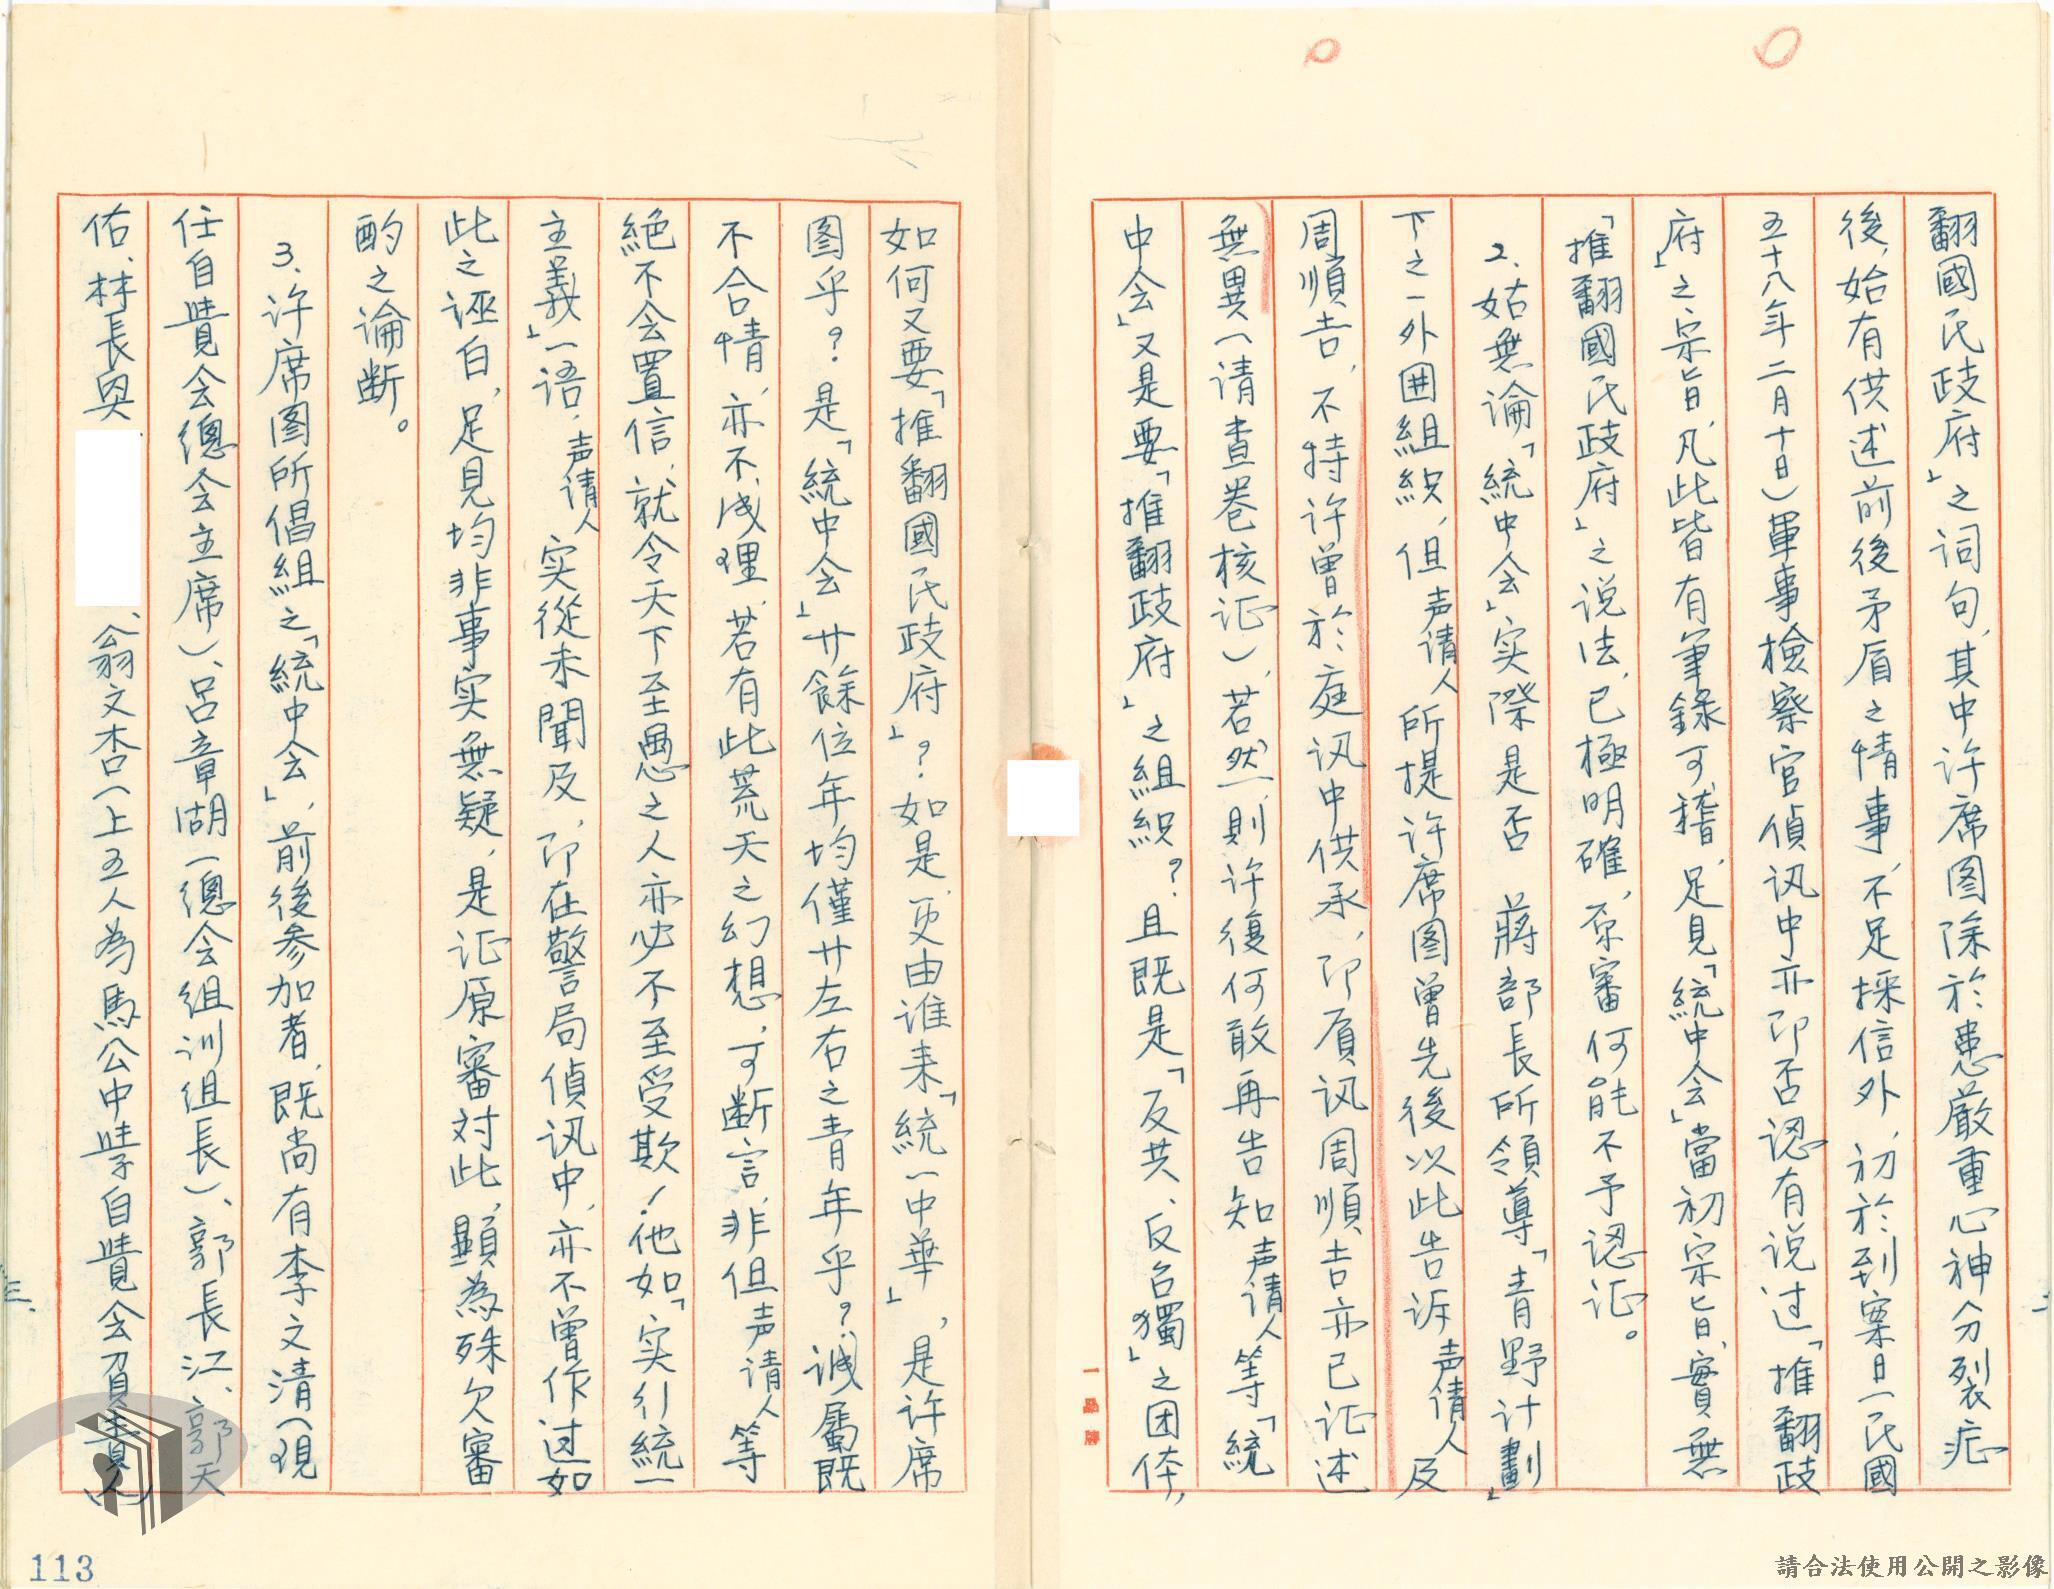 翻國民政府」之詞句,其中许席图除於患嚴重心神分裂症
後,始有供述前後矛盾之情事,不足採信外,初於到案日(民國
五十八年二月十日)軍事檢察官偵讯中亦即否認有说过「推翻政
府」之宗旨,凡此皆有筆錄可稽,足見「統中会」當初宗旨,實無
「推翻國民政府」之说法,已極明確,原審何能不予認证。
2.姑無論「統中会」实際是否 蔣部長所領導「青野计劃」
下之一外囲組織,但声请人所提许席图曾先後以此告诉声请人及
周順吉,不特许曾於庭讯中供承,即质讯周順吉亦已证述
無異(请查卷核证),若然,則许復何敢再告知声请人等「統
中会」又是要「推翻政府」之組織?且既是「反共、反台獨」之团体,
如何又要「推翻國民政府」?如是,更由谁来「統一中華」,是许席
图乎?是「統中会」廿餘位年均僅廿左右之青年乎?诚屬既
不合情,亦不成理,若有此荒天之幻想,可断言,非但声请人等
絕不会置信,就令天下至愚之人亦必不至受欺!他如「实行統一
主義」一语,声请人实從未聞及,即在警局偵讯中,亦不曾作过如
此之誣白,足見均非事实無疑,是证原審对此,顯為殊欠審
酌之論断。
3.许席图所倡組之「統中会」,前後参加者,既尚有李文清(現
任自覺会總会主席)、呂章湖(總会組训組長)、郭長江、郭天
佑、林長與、
、翁文杏(上五人為馬公中學自覺会負責人)
二
三
113
請合法使用公開之影像